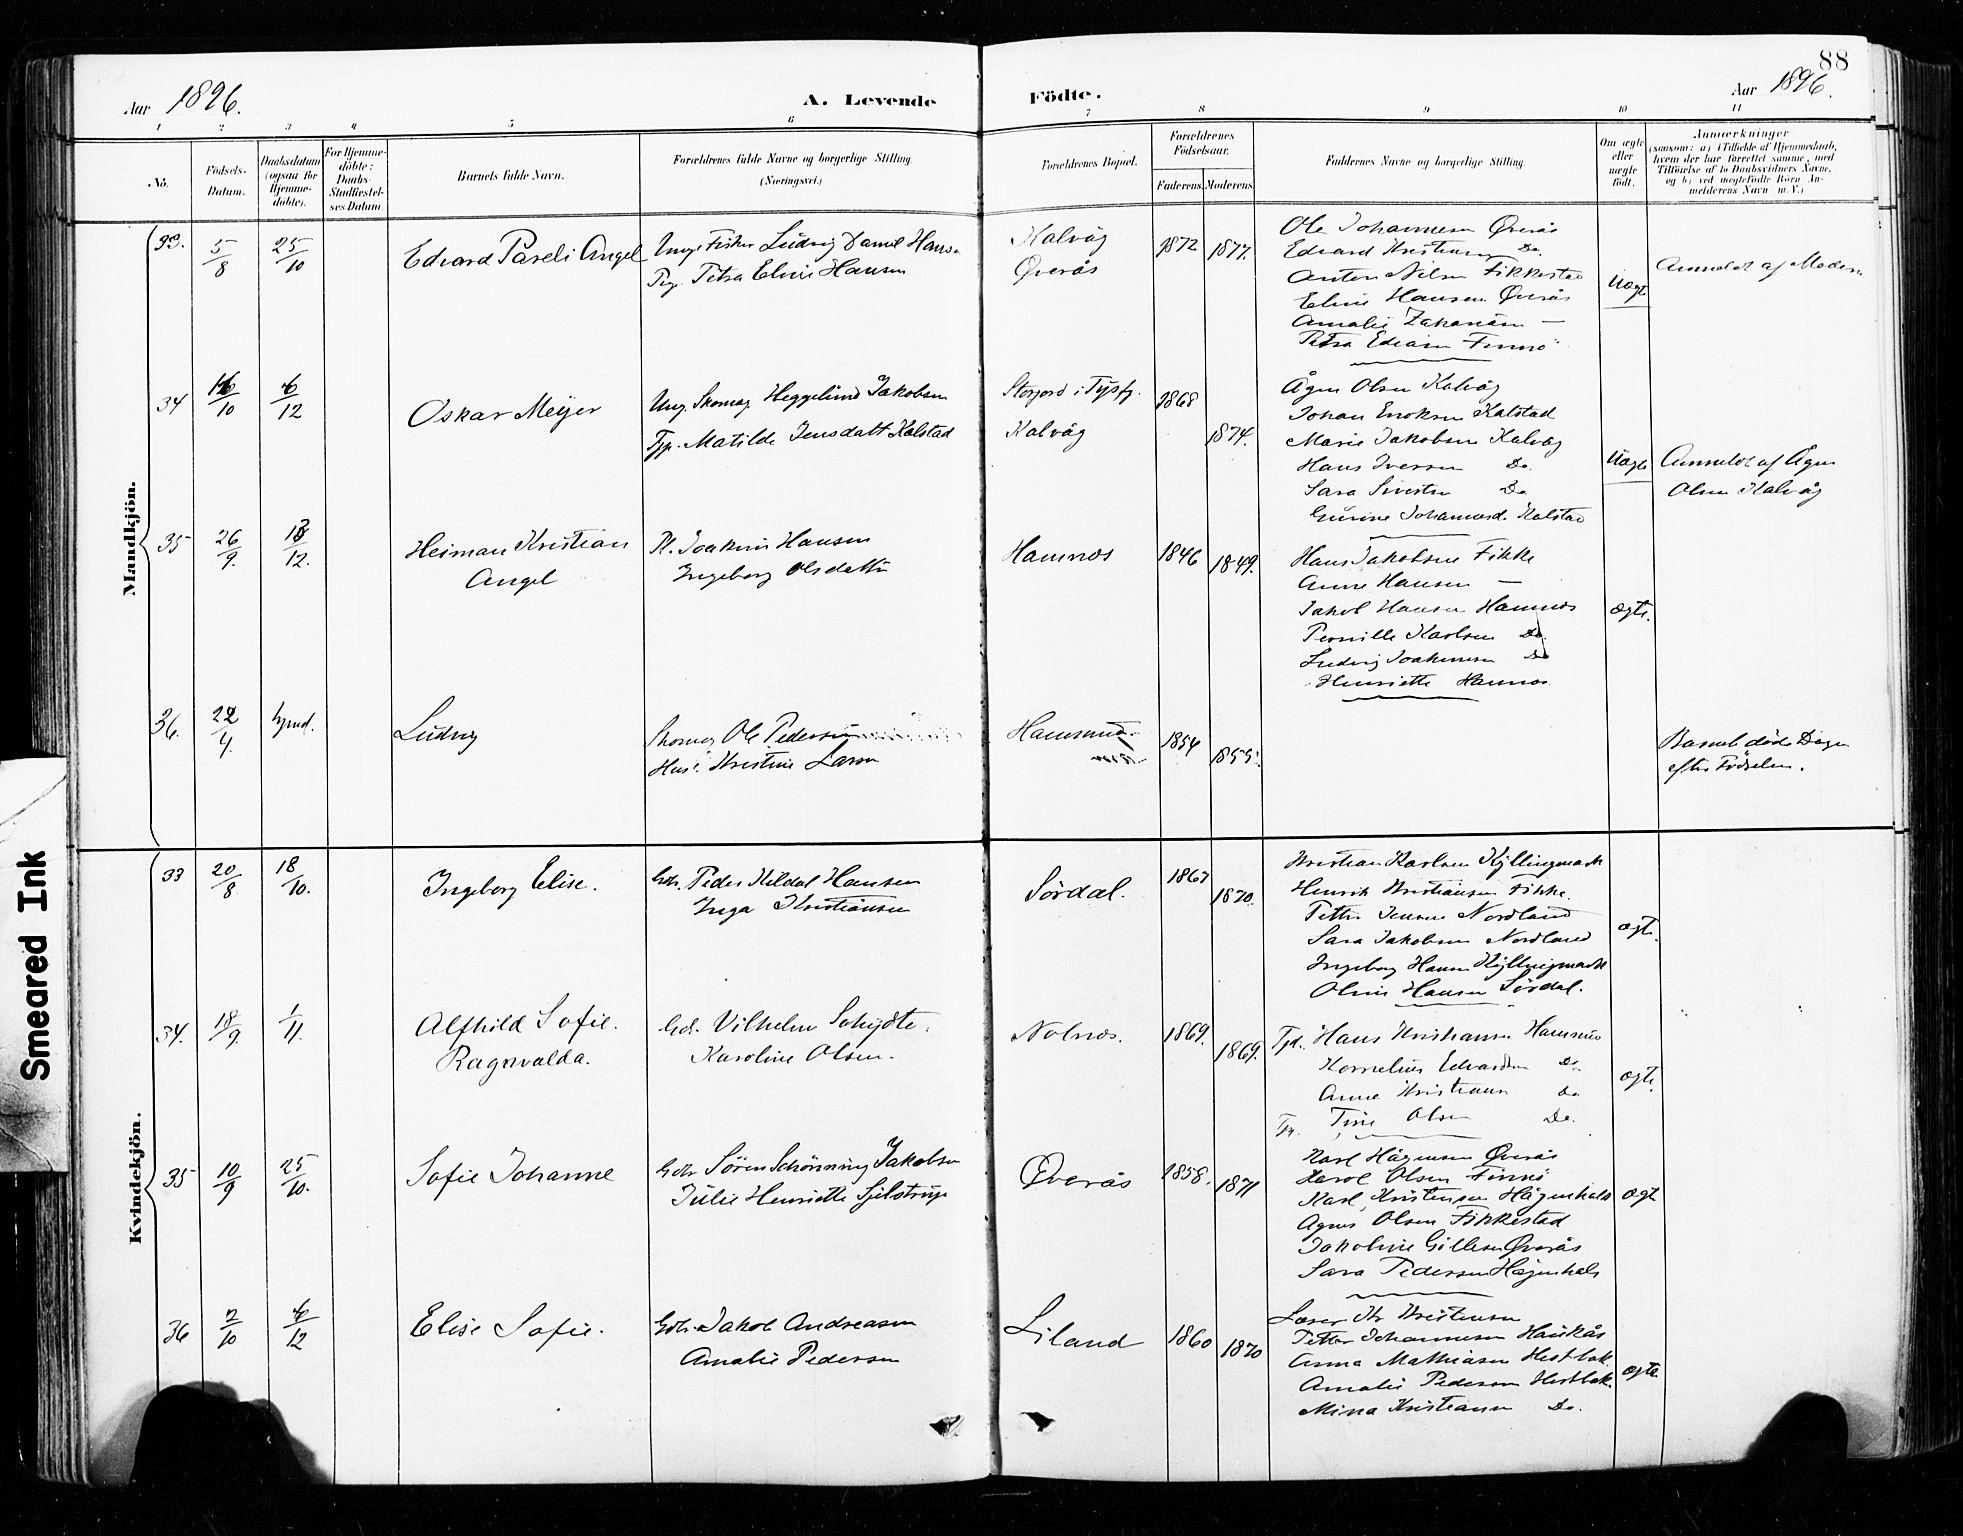 88
Aar 1896.
A. Levende
Födte.
Aar 1896.
1 2 3 4 5 6 7 8 9 10 11
No.
Födsels-
Datum.
Daabsdatum
(ogsaa for
Hjemme-
döbte).
For Hjemme-
döbte:
Daabs-
Stadfæstel-
ses Datum.
Barnets fulde Navn.
Forældrenes fulde Navne og borgerlige Stilling.
(Næringsvei.)
Forældrenes Bopæl.
Forældrenes
Födselsaar.
Faderens. Moderens.
Faddernes Navne og borgerlige Stilling.
Om ægte
eller
uægte
födt.
Anmærkninger
(saasom: a) i Tilfælde af Hjemmedaab,
hvem der har forrettet samme, med
Tilföielse af to Daabsvidners Navne,
og b) ved uægtefödte Börn An-
melderens Navn m. V.)
Mandkjön.
33. 5/8 25/10
Edvard Pareli Angel
Ludvig Daniel
Petra Eline Hansen
Kalvåg
Øverås
1872 1877.
Ole Johannesen Øverås
Edvard Kristiansen Do
Anton Nilsen Fikkestad
Eline Hansen Øverås
Amalie Zakariasen —
Petra Finnö
Uægte
Anmeldt af Moderen
34 10 6/12
Oskar Meyer
Ung. Skomag Heggelund Jakobsen
Matilde Jensdatt Kalstad
Storjord i Tysfj.
Kalvåg
1868
1874.
Ågen Olsen Kalvåg
Johan Enoksen Kalstad
Marie Jakobsen Kalvåg
Hans Iversen Do.
Sara Sivertsen Do
Gurine Johannesd. Kalstad
Uægte
Anmeldt af Ågen
Olsen Kalvåg
35 26/9. 12.
Heiman Kristian
Angel
Joakim Hansen
Ingeborg Olsdatter
Hamnes
1846 1849.
Hans Jakobsen Fikke
Anne Hansen —
Jakob Hansen Hamnes
Pernille Karlsen Do.
Ludvig Joakimsen Do
Henriette Hamnes
ægte.
36. 22/4. hjemd.
Ludvig
Skomag Ole Pedersen
Kristine Larsen
Hamsund
1854 1855.
Barnet döde Dagen
efter Födselen.
Kvindekjön.
33 20/8 18/10.
Ingeborg Elise.
Gdr. Peder Kildal Hansen
Inga Kristiansen
Sördal.
1867 1870.
Kristian Karlsen Kyllingmark
Henrik Kristiansen Fikke.
Petter Jensen Nordland
Sara Jakobsen Nordland
Ingeborg Hansen Kyllingmark
Oline Hansen Sördal.
ægte.
34. 18/9. 1/11.
Alfhild Sofie.
Ragnvalda.
Vilhelm Schjdte.
Karoline Olsen.
Nolnes.
1869. 1869.
Hans Kristiansen Hamsund
Kornelius Edvardsen Do.
Anne Kristiansen Do
Tine Olsen Do.
ægte.
35 10/9 25/10.
Sofie Johanne
Gdr Sören Schönning Jakobsen
Julie Henriette
Øverås
1858. 1871
Karl Hågensen Øverås
Karol Olsen Finnö
Karl Kristensen Hågenhals
Agnes Olsen Fikkestad
Jakobine Gillesen Øverås
Sara Pedersen Hågenhals
ægte
36 2/10 6/12
Elise Sofie.
Gdr. Jakob Andreasen
Amalie Pedersen
Liland
1860 1870
Kr Kristensen
Petter Johannesen Haukås
Anna Mathiasen Hestbak.
Amalie Pedersen Hestbak.
Mina Kristiansen Do.
ægte.
Smeared Ink